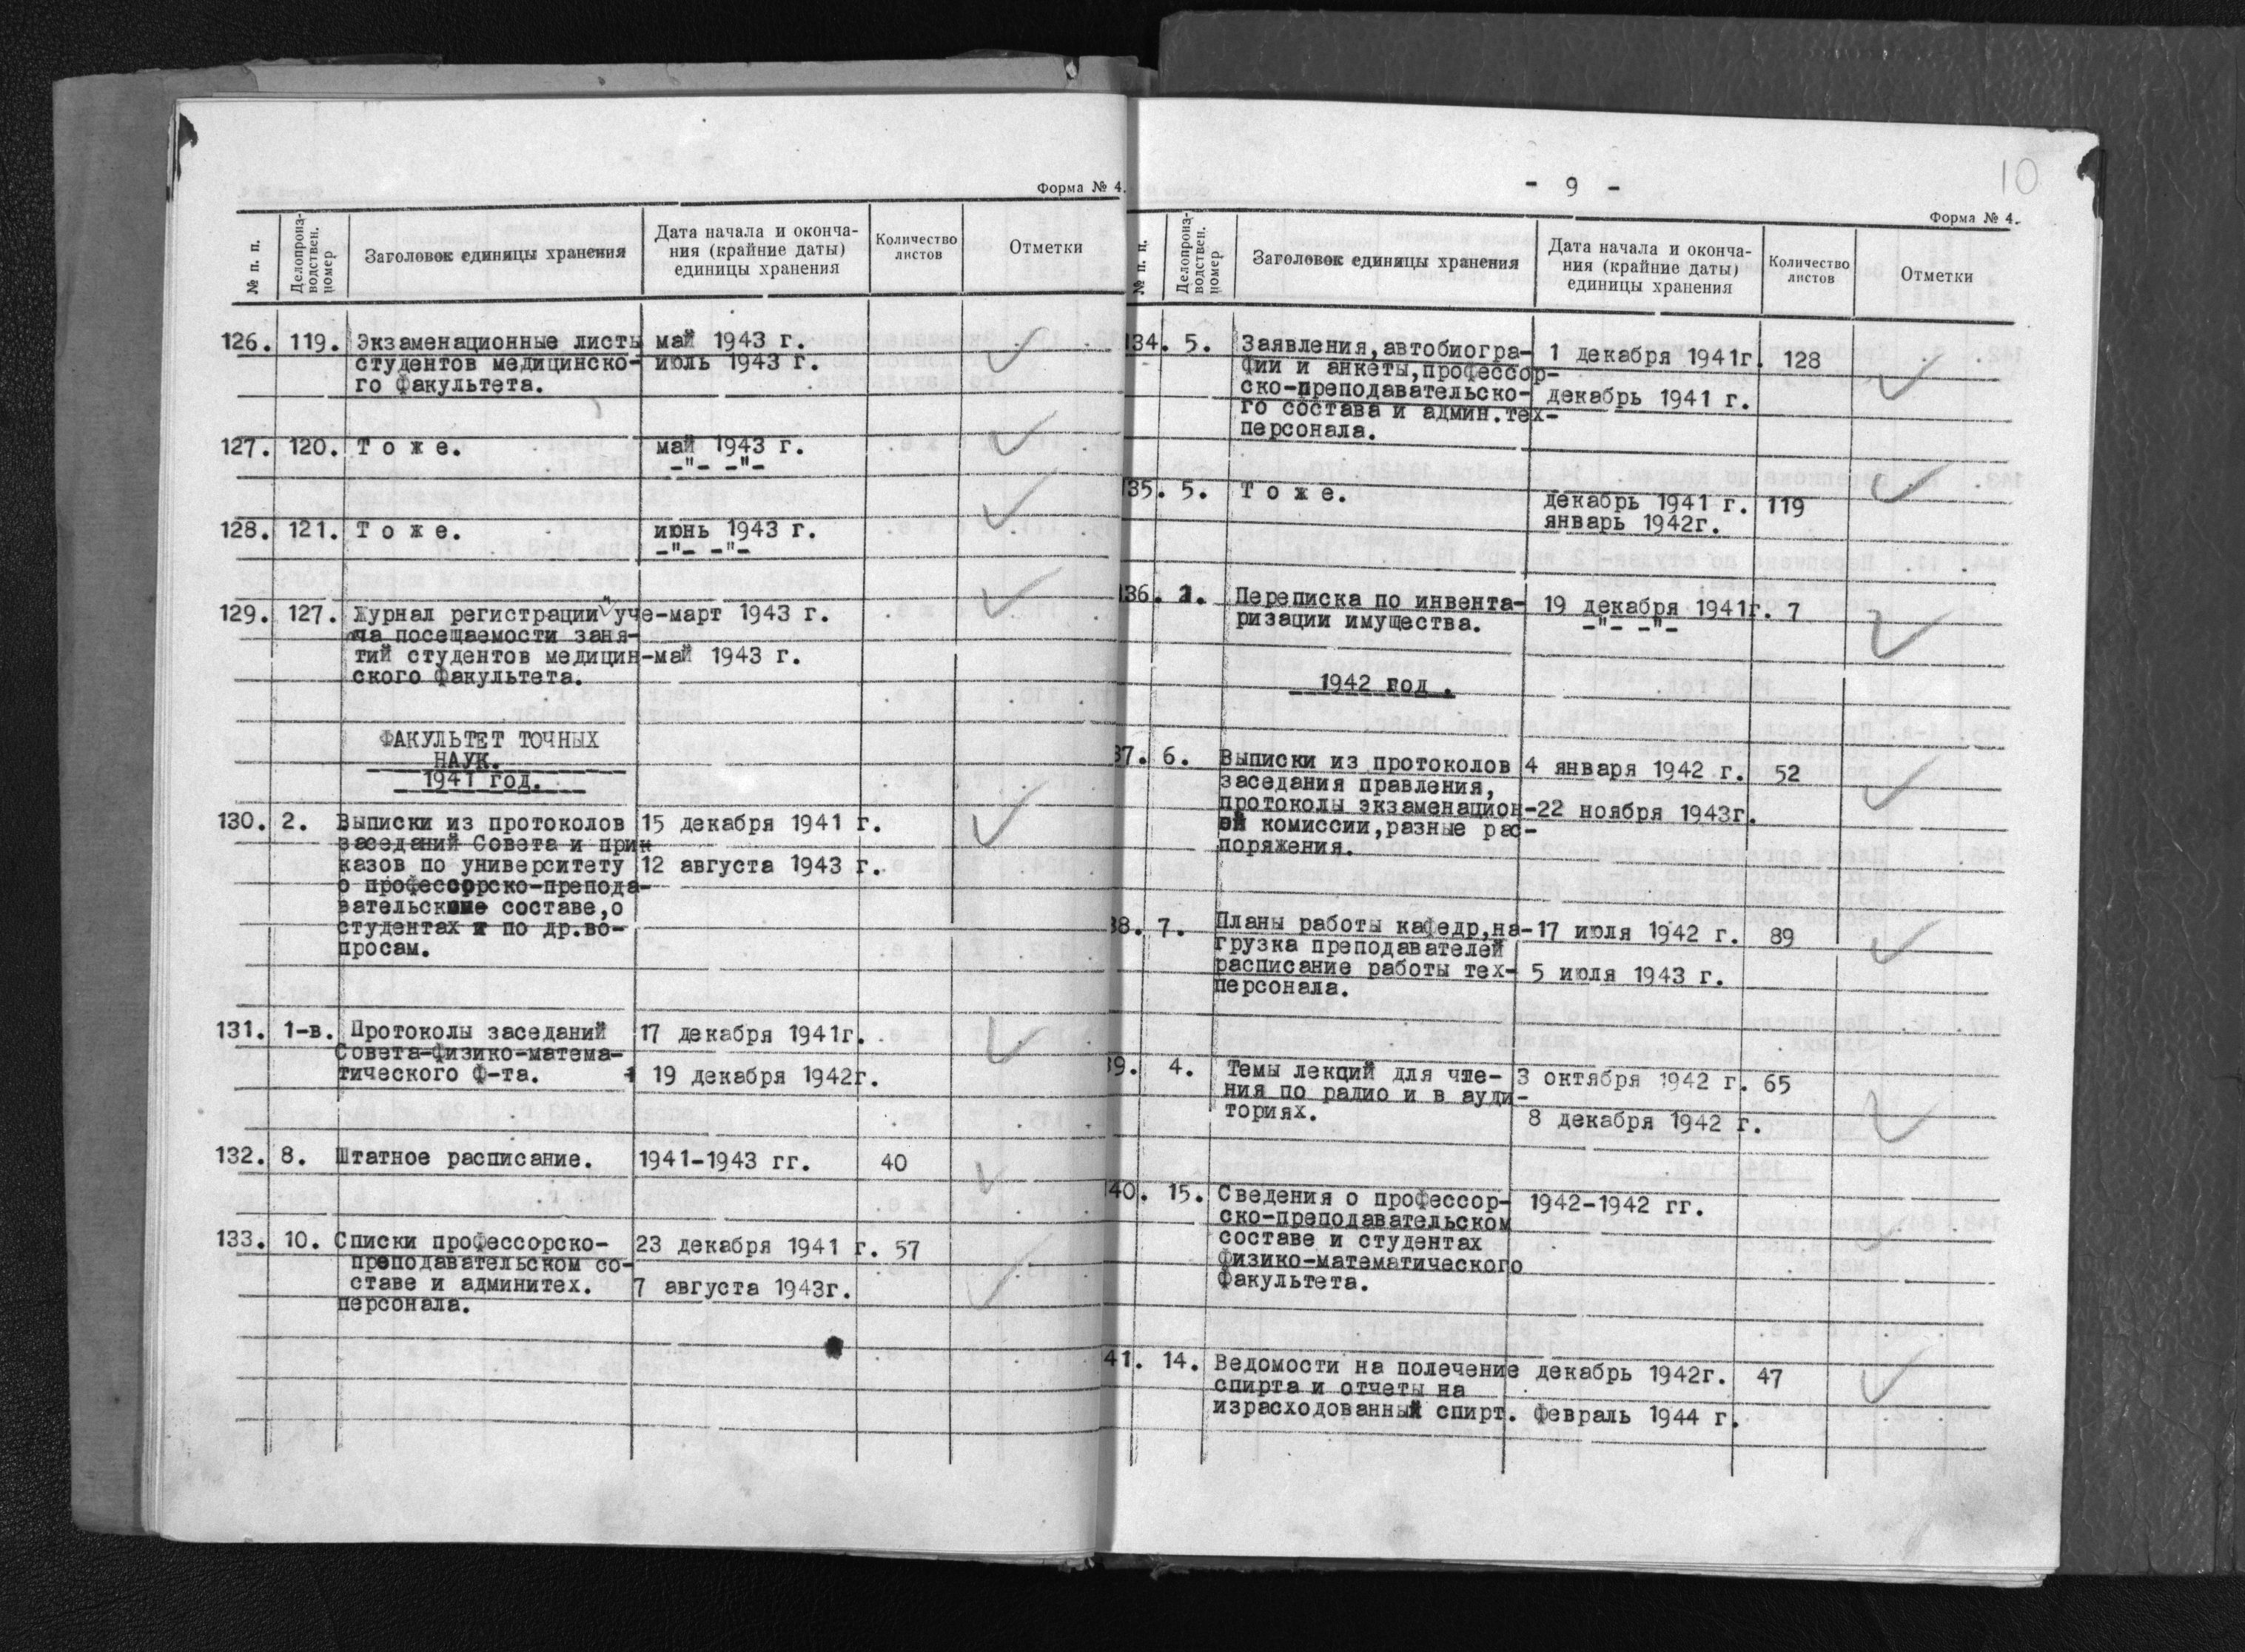 Форма № 4.
№ п. п.
Делопроиз-
водствен.
номер
Заголовок единицы хранения
Дата начала и оконча-
ния (крайние даты)
единицы хранения
Количество
листов
Отметки
126. 119. Экзаменационные листы май 1943 г.
студентов медицинско- июль 1943 г.
го факультета.
127. 120. Т о ж е. май 1943 г.
-"- -"-
128. 121. Т о ж е. июнь 1943 г.
-"- -"-
129. 127. Журнал регистрации уче-март 1943 г.
та посещаемости заня-
тий студентов медицин-май 1943 г.
ского факультета.
ФАКУЛЬТЕТ ТОЧНЫХ
НАУК.
1941 год.
130. 2. Выписки из протоколов 15 декабря 1941 г.
заседаний Совета и при-
казов по университету 12 августа 1943 г.
о профессорско-препода-
вательском составе,о
студентах и по др.во-
просам.
131. 1-в. Протоколы заседаний 17 декабря 1941г.
Совета-физико-матема-
тического ф-та. 19 декабря 1942г.
132. 8. Штатное расписание. 1941-1943 гг. 40
133. 10. Списки профессорско- 23 декабря 1941 г. 57
преподавательском со-
ставе и админитех. 7 августа 1943г.
персонала.
- 9 -
10
Форма № 4.
№ п. п.
Делопроиз-
водствен.
номер
Заголовок единицы хранения
Дата начала и оконча-
ния (крайние даты)
единицы хранения
Количество
листов
Отметки
134. 5. Заявления,автобиогра- 1 декабря 1941г. 128
фии и анкеты,профессор-
ско-преподавательско- декабрь 1941 г.
го состава и админ.тех-
персонала.
135. 5. Т о ж е. декабрь 1941 г. 119
январь 1942г.
136. 1. Переписка по инвента- 19 декабря 1941г. 7
ризации имущества. -"- -"-
1942 год.
37. 6. Выписки из протоколов 4 января 1942 г. 52
заседания правления,
протоколы экзаменацион-22 ноября 1943г.
ой комиссии,разные рас-
поряжения.
38. 7. Планы работы кафедр,на-17 июля 1942 г. 89
грузка преподавателей
расписание работы тех- 5 июля 1943 г.
персонала.
39. 4. Темы лекций для чте- 3 октября 1942 г. 65
ния по радио и в ауди-
ториях. 8 декабря 1942 г.
40. 15. Сведения о профессор- 1942-1942 гг.
ско-преподавательском
составе и студентах
физико-математического
факультета.
41. 14. Ведомости на полечение декабрь 1942г. 47
спирта и отчеты на
израсходованный спирт. февраль 1944 г.